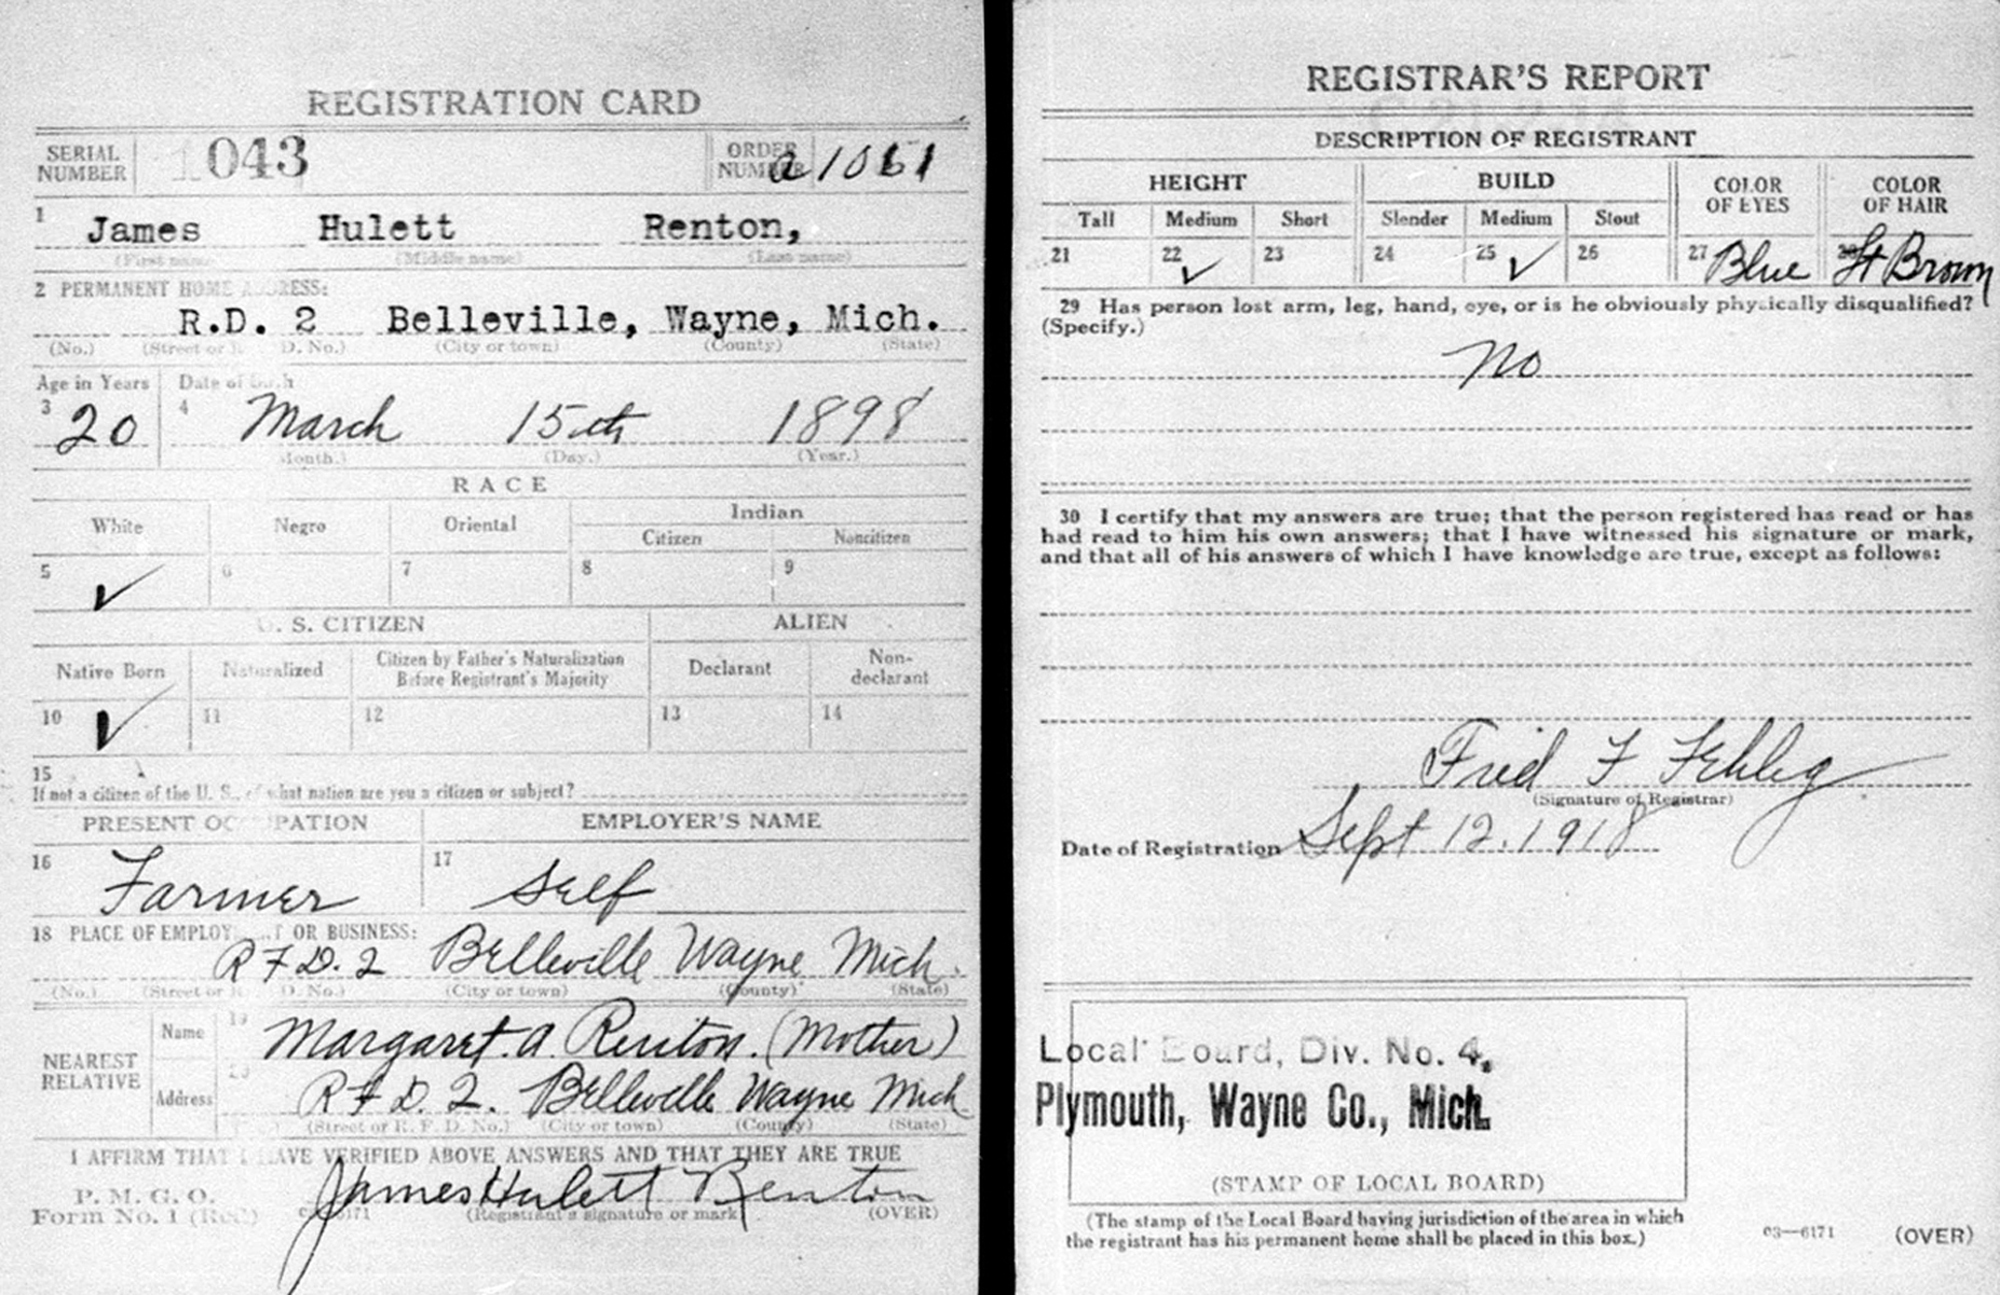 REGISTRATION CARD
SERIAL NUMBER 1043 ORDER NUMBER a1061
1 James Hulett Renton,
(First name) (Middle name) (Last name)
2 PERMANENT HOME ADDRESS:
R.D. 2 Belleville, Wayne, Mich.
(No.) (Street or R. F. D. No.) (City or town) (County) (State)
Age in Years Date of Birth
3 20 4 March 15th 1898
(Month.) (Day.) (Year.)
RACE
White Negro Oriental Indian
Citizen Noncitizen
5 ✓ 6 7 8 9
U. S. CITIZEN ALIEN
Native Born Naturalized Citizen by Father's Naturalization Before Registrant's Majority Declarant Non-declarant
10 ✓ 11 12 13 14
15
If not a citizen of the U. S., of what nation are you a citizen or subject?
PRESENT OCCUPATION EMPLOYER'S NAME
16 Farmer 17 Self
18 PLACE OF EMPLOYMENT OR BUSINESS:
R F D. 2 Belleville Wayne Mich.
(No.) (Street or R. F. D. No.) (City or town) (County) (State)
NEAREST RELATIVE
Name 19 Margaret. A. Renton. (Mother)
Address 20 R F D. 2. Belleville Wayne Mich
(Street or R. F. D. No.) (City or town) (County) (State)
I AFFIRM THAT I HAVE VERIFIED ABOVE ANSWERS AND THAT THEY ARE TRUE
P. M. G. O.
Form No. 1 (Red) James Hulett Renton
(Registrant's signature or mark) (OVER)
REGISTRAR'S REPORT
DESCRIPTION OF REGISTRANT
HEIGHT BUILD COLOR OF EYES COLOR OF HAIR
Tall Medium Short Slender Medium Stout
21 22 ✓ 23 24 25 ✓ 26 27 Blue 28 Lt Brown
29 Has person lost arm, leg, hand, eye, or is he obviously physically disqualified?
(Specify.)
No
30 I certify that my answers are true; that the person registered has read or has
had read to him his own answers; that I have witnessed his signature or mark,
and that all of his answers of which I have knowledge are true, except as follows:
Fred F
(Signature of Registrar)
Date of Registration Sept 12. 1918
Local Board, Div. No. 4,
Plymouth, Wayne Co., Mich.
(STAMP OF LOCAL BOARD)
(The stamp of the Local Board having jurisdiction of the area in which
the registrant has his permanent home shall be placed in this box.)
03—6171 (OVER)